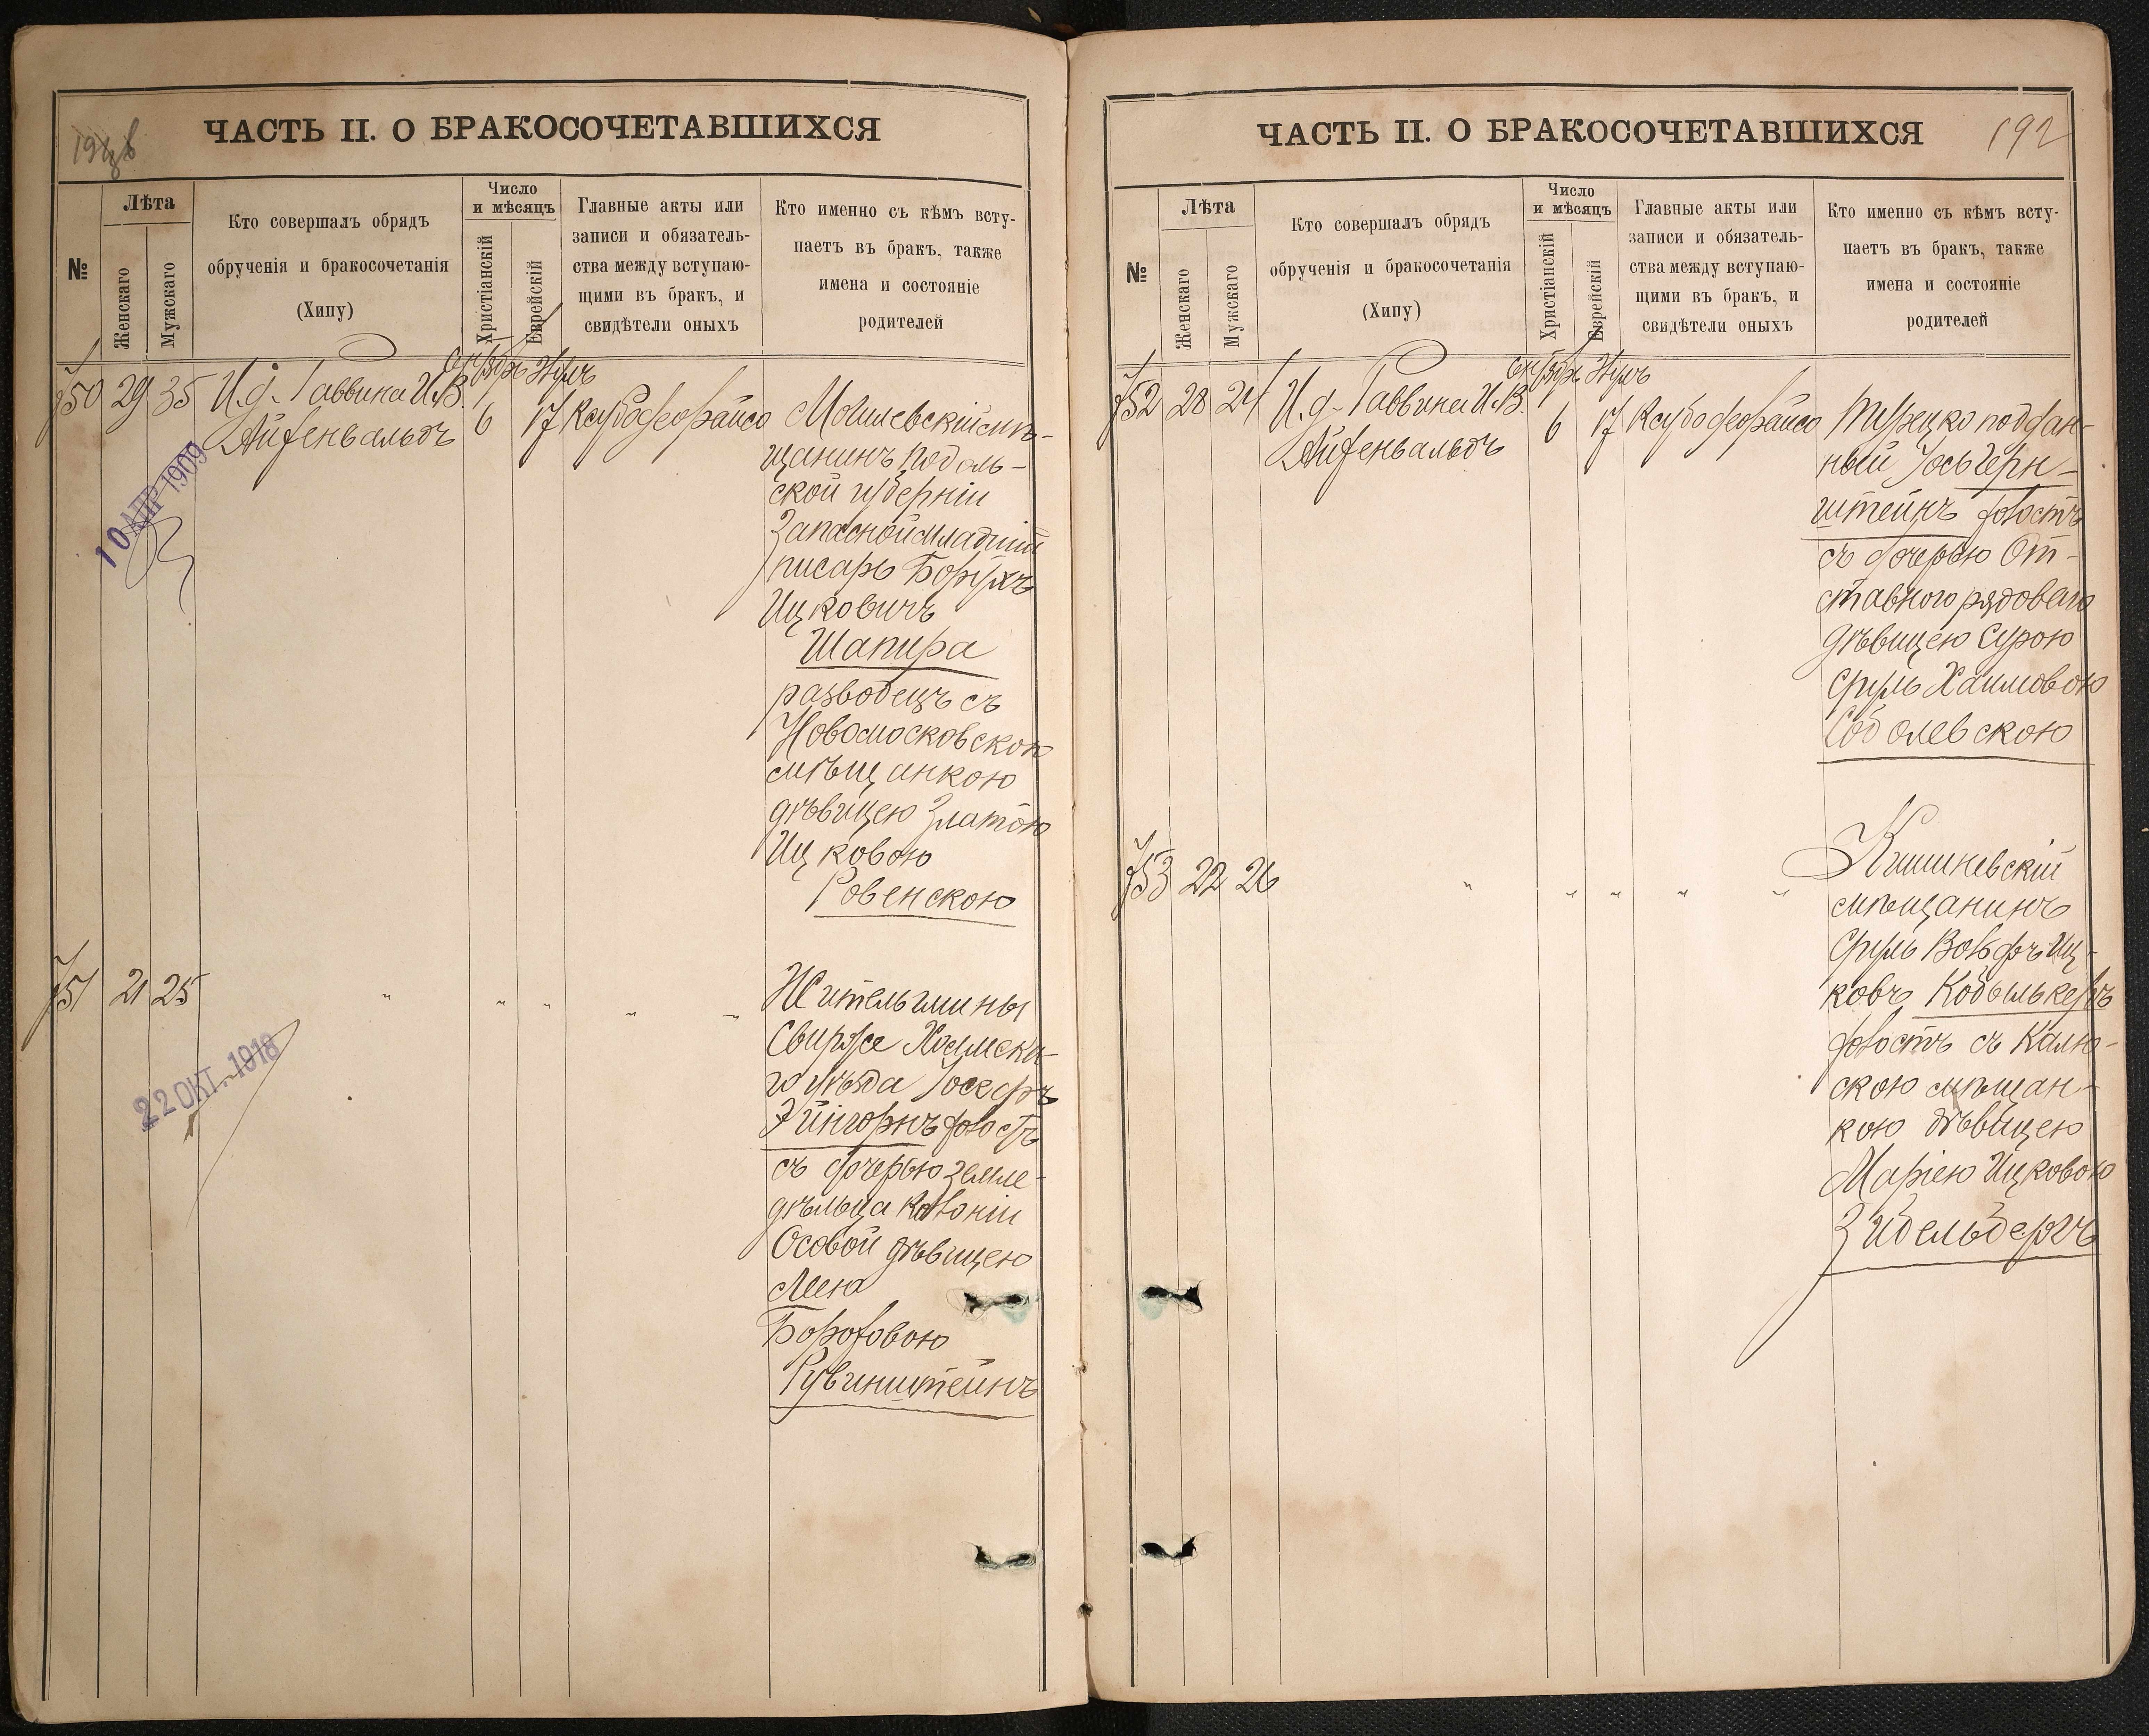 ЧАСТЬ II. О БРАКОСОЧЕТАВШИХСЯ
№
Лѣта
Женскаго
Мужскаго
Кто совершалъ обрядъ
обрученія и бракосочетанія
(Хипу)
Число
и мѣсяцъ
Христіанскій
Еврейскій
Главные акты или
записи и обязатель-
ства между вступаю-
щими въ бракъ, и
свидѣтели оныхъ
Кто именно съ кѣмъ всту-
паетъ въ бракъ, также
имена и состояніе
родителей
750 29 35
И. д. Раввина И. В.
Айзенвальдъ
6 17
Могилевскій мѣ-
щанинъ Подоль-
ской губерніи
Запасной младшій
писарь Борухъ
Ицковичъ
Шапира
разводецъ съ
Новомосковскою
мѣщанкою
дѣвицею Златою
Ицковою
Ровенскою
10 АПР 1909
751 21 25
" " " " "
Житель гмины
Свирже Холмска-
го уѣзда Іосефъ
Эйнгорнъ холостъ
съ дочерью земле-
дѣльца колоніи
Особой дѣвицею
Лею
Бороховою
Рувинштейнъ
22 ОКТ. 1918
ЧАСТЬ II. О БРАКОСОЧЕТАВШИХСЯ
192
№
Лѣта
Женскаго
Мужскаго
Кто совершалъ обрядъ
обрученія и бракосочетанія
(Хипу)
Число
и мѣсяцъ
Христіанскій
Еврейскій
Главные акты или
записи и обязатель-
ства между вступаю-
щими въ бракъ, и
свидѣтели оныхъ
Кто именно съ кѣмъ всту-
паетъ въ бракъ, также
имена и состояніе
родителей
752 28 24
И. д. Раввина И. В.
Айзенвальдъ
6 17
Турецко поддан-
ный Іось Герн-
штейнъ холостъ
съ дочерью От-
ставного рядоваго
дѣвицею Сурою
Сруль Хаимовою
Соболевскою
753 22 26
" " " " "
Кишиневскій
мѣщанинъ
Сруль Вольфъ Иц-
ковъ Кобылькеръ
холостъ съ Калю-
скою мѣщан-
кою дѣвицею
Маріею Ицковою
Зидельбергъ